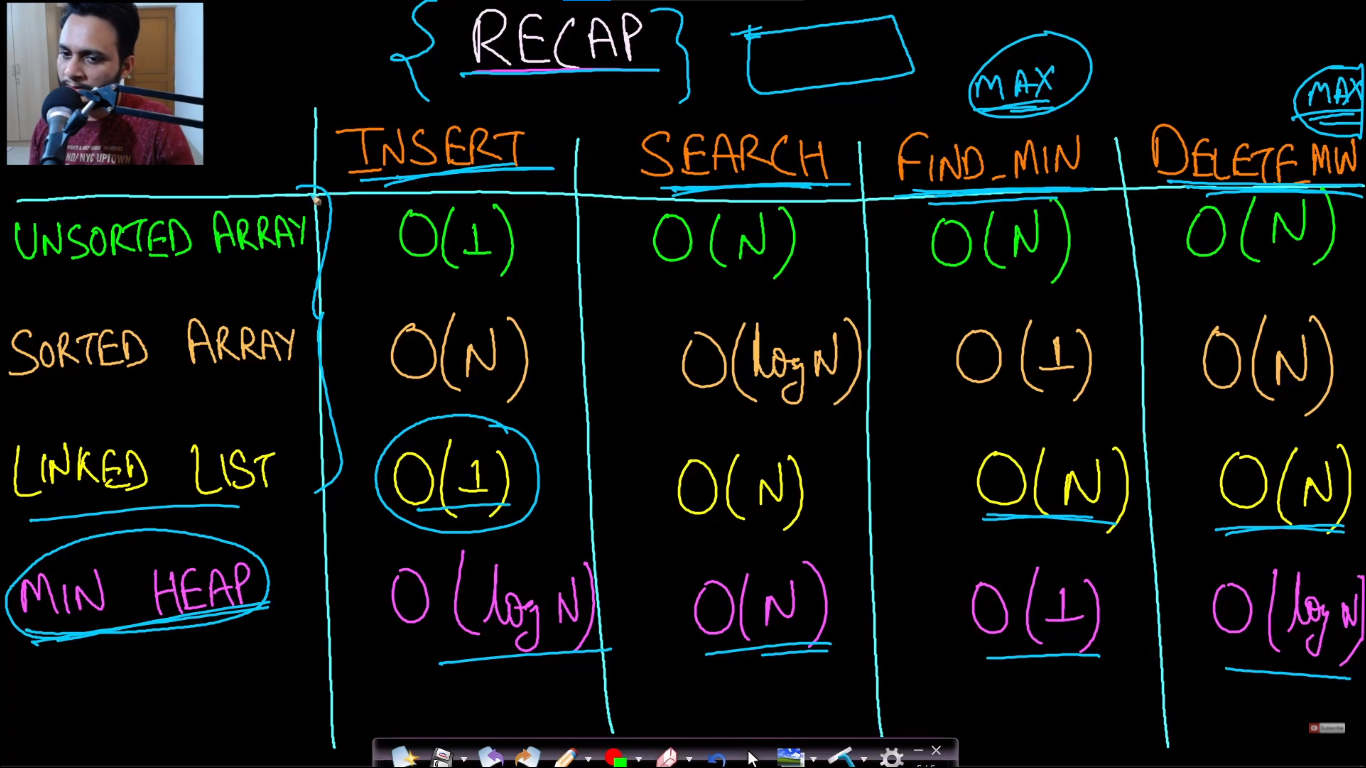 { RECAP }
MAX
MAX
INSERT SEARCH FIND_MIN DELETE_MIN
UNSORTED ARRAY O(1) O(N) O(N) O(N)
SORTED ARRAY O(N) O(log N) O(1) O(N)
LINKED LIST O(1) O(N) O(N) O(N)
MIN HEAP O(log N) O(N) O(1) O(log N)
IND/NYC UPTOWN
Subscribe